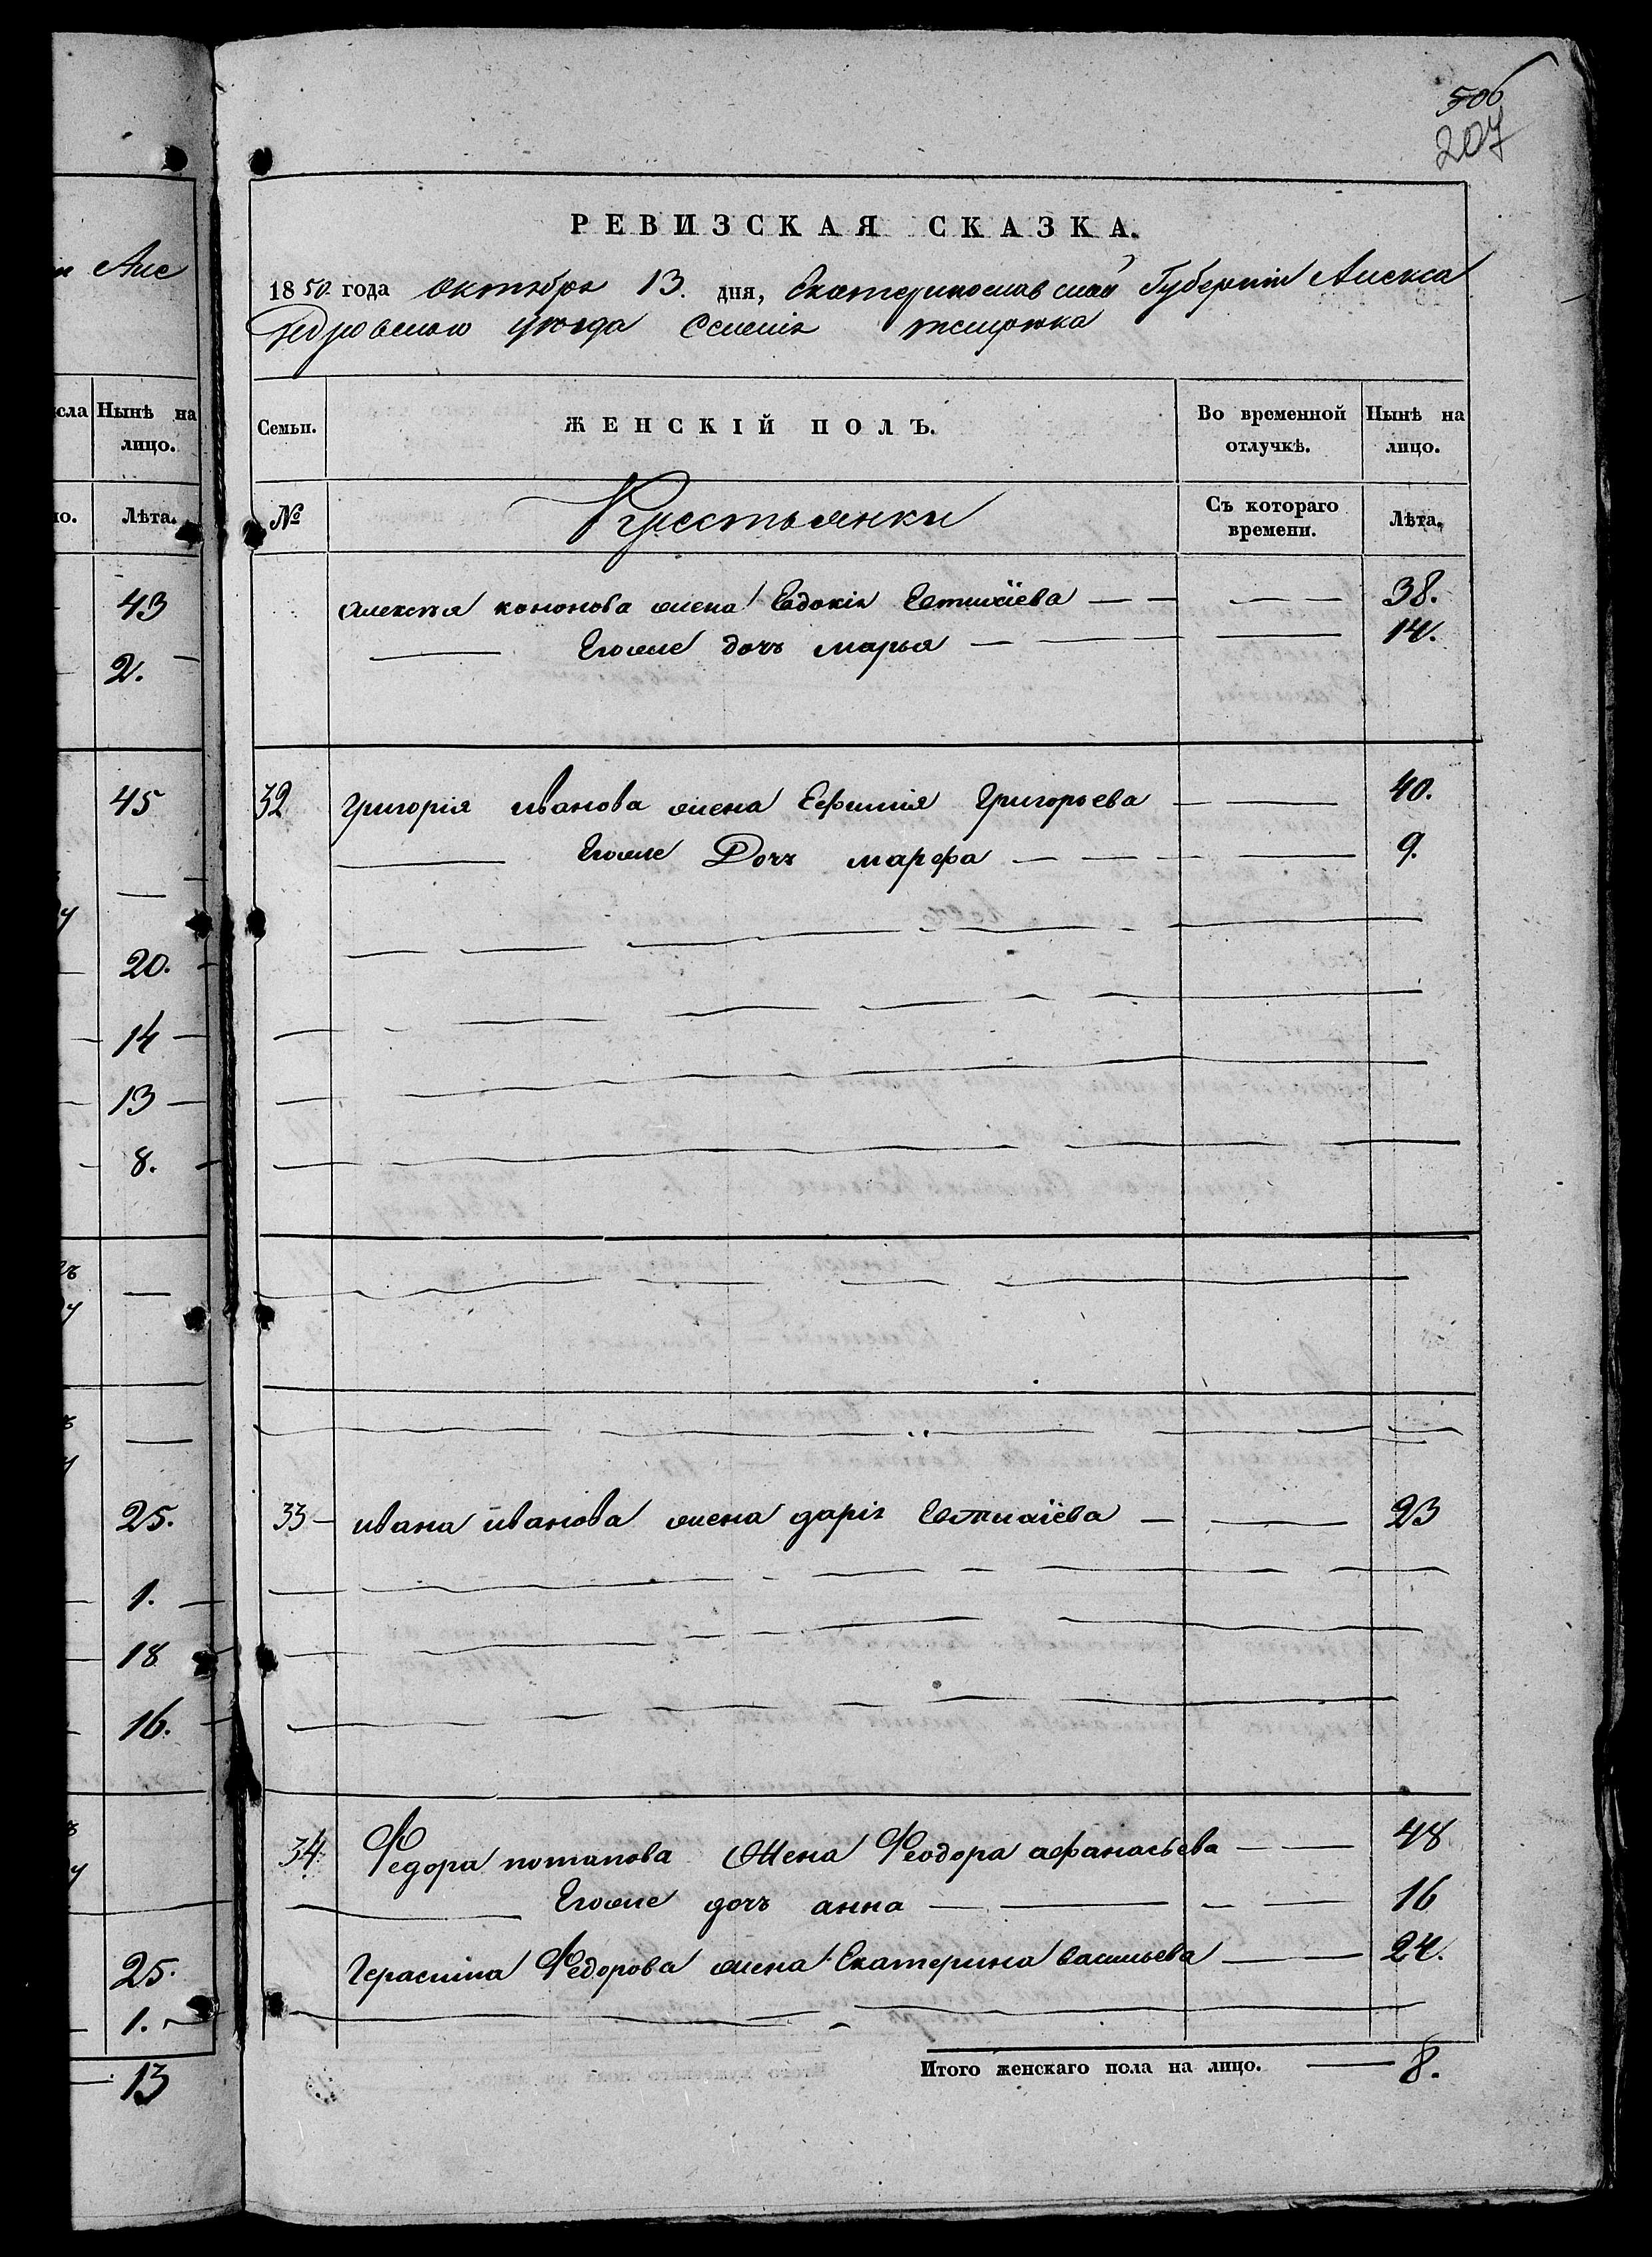 506
207
РЕВИЗСКАЯ СКАЗКА.
1850 года октября 13. дня, Екатеринославской Губерніи Алекса
ндровскаго уезда Селенія
Семьи. ЖЕНСКІЙ ПОЛЪ. Во временной отлучкѣ. Нынѣ на лицо.
№ Крестьянки Съ котораго времени. Лѣта.
Алексѣя кононова жена Евдокія Евтихіева 38.
Егоже дочь марья 14.
32 Григорія иванова жена Ефимія Григорьева 40.
Егоже Дочь марфа 9.
33 ивана иванова жена дарія 23
34 Федора потапова Жена Феодора афанасьева 48
Егоже дочь анна 16
Герасима Федорова жена Екатерина васильева 24.
Итого женскаго пола на лицо. 8.
Але
сла Нынѣ на
лицо.
Лѣта.
43
2.
45
20.
14
13
8.
25.
1.
18
16.
25.
1.
13